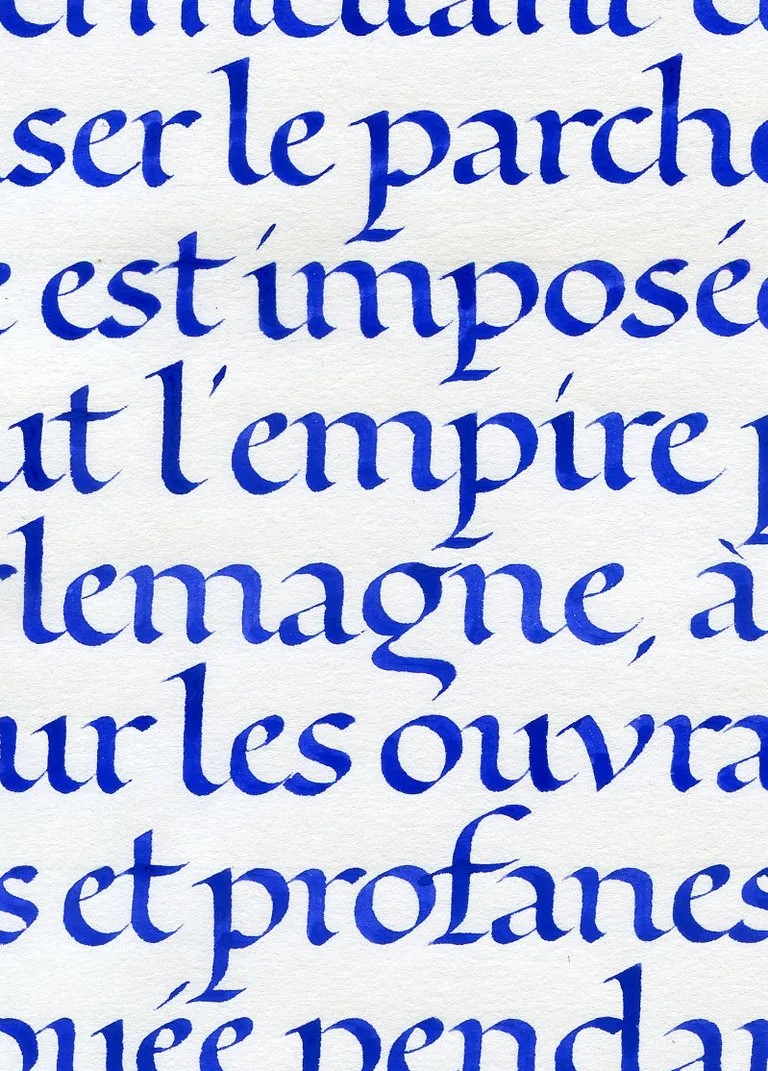 ermettant d
ser le parche
e est imposée
ut l'empire p
rlemagne, à
ur les ouvra
s et profanes
ouée pendan